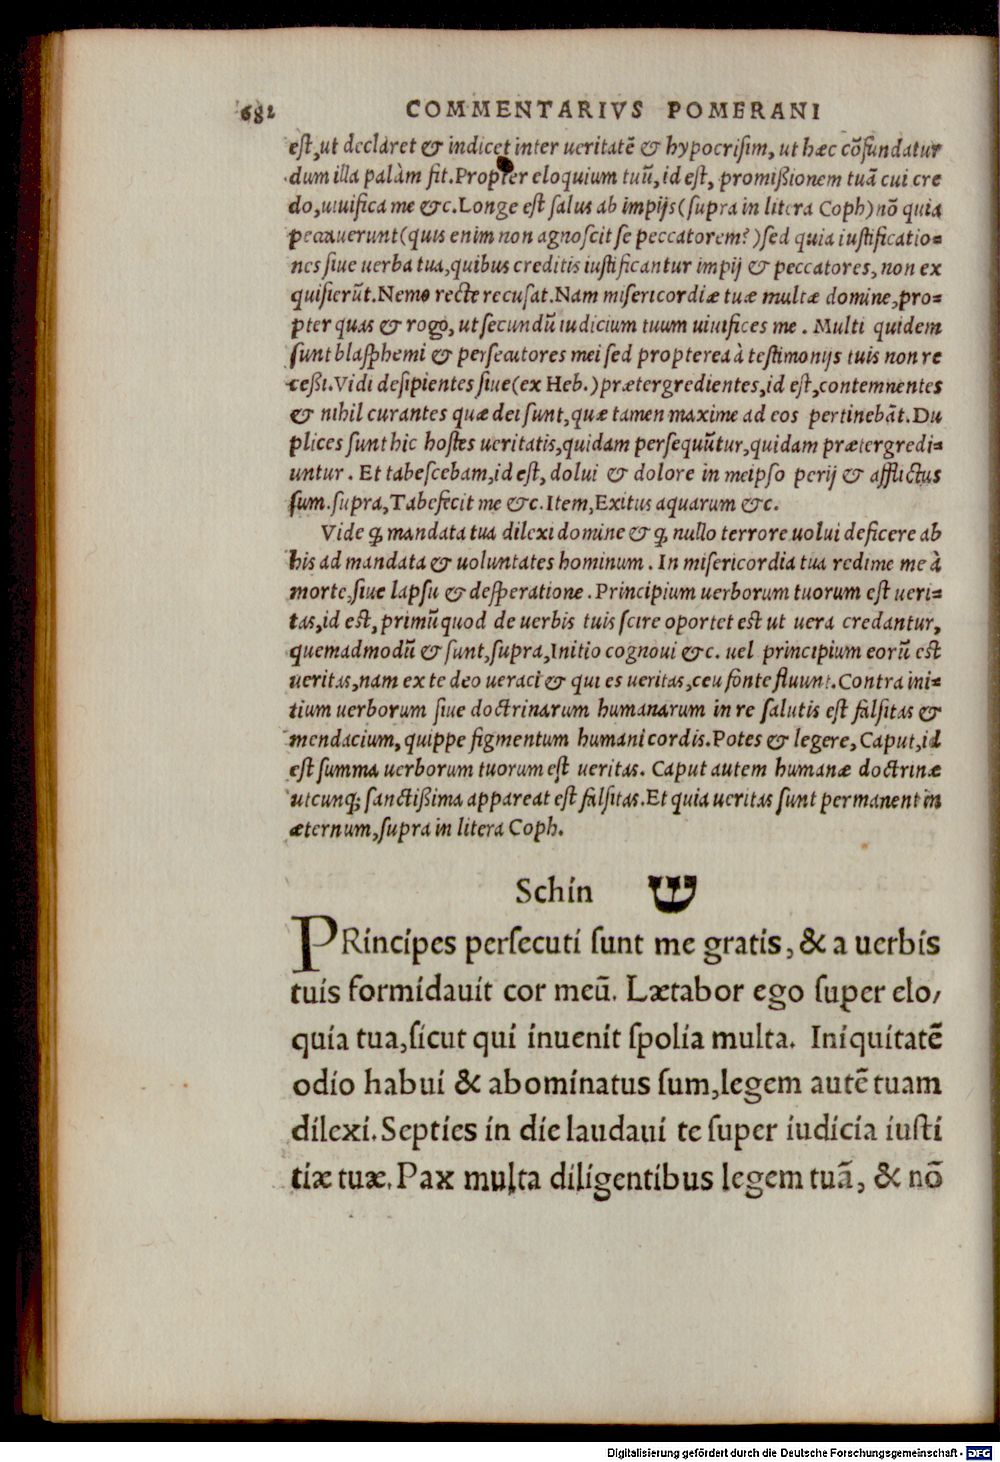 682 COMMENTARIVS POMERANI
est, ut declaret & indicet inter ueritatē & hypocrisim, ut hæc cōfundatur
dum illa palàm fit. Propter eloquium tuū, id est, promißionem tuā cui cre
do, uiuifica me &c. Longe est salus ab impijs (supra in litera Coph) nō quia
peccauerunt (quis enim non agnoscit se peccatorem?) sed quia iustificatio=
nes siue uerba tua, quibus creditis iustificantur impij & peccatores, non ex
quisierūt. Nemo recte recusat. Nam misericordiæ tuæ multæ domine, pro=
pter quas & rogo, ut secundū iudicium tuum uiuifices me. Multi quidem
sunt blasphemi & persecutores mei sed propterea à testimonijs tuis non re
ceßi. Vidi desipientes siue (ex Heb.) prætergredientes, id est, contemnentes
& nihil curantes quæ dei sunt, quæ tamen maxime ad eos pertinebāt. Du
plices sunt hic hostes ueritatis, quidam persequūtur, quidam prætergredi=
untur. Et tabescebam, id est, dolui & dolore in meipso perij & afflictus
sum. supra, Tabefecit me &c. Item, Exitus aquarum &c.
Vide ꝙ mandata tua dilexi domine & ꝙ nullo terrore uolui deficere ab
his ad mandata & uoluntates hominum. In misericordia tua redime me à
morte, siue lapsu & desperatione. Principium uerborum tuorum est ueri=
tas, id est, primū quod de uerbis tuis scire oportet est ut uera credantur,
quemadmodū & sunt, supra, Initio cognoui &c. uel principium eorū est
ueritas, nam ex te deo ueraci & qui es ueritas, ceu fonte fluunt. Contra ini=
tium uerborum siue doctrinarum humanarum in re salutis est falsitas &
mendacium, quippe figmentum humani cordis. Potes & legere, Caput, id
est summa uerborum tuorum est ueritas. Caput autem humanæ doctrinæ
utcunq; sanctißima appareat est falsitas. Et quia ueritas sunt permanent in
æternum, supra in litera Coph.
Schin ש
PRincipes persecuti sunt me gratis, & a uerbis
tuis formidauit cor meū. Lætabor ego super elo/
quia tua, sicut qui inuenit spolia multa. Iniquitatē
odio habui & abominatus sum, legem autē tuam
dilexi. Septies in die laudaui te super iudicia iusti
tiæ tuæ. Pax multa diligentibus legem tuā, & nō
Digitalisierung gefördert durch die Deutsche Forschungsgemeinschaft - DFG